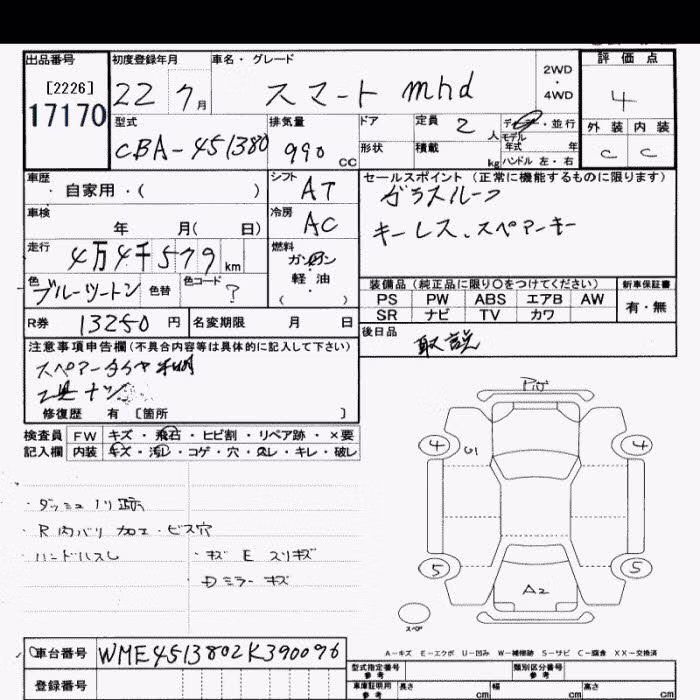 出品番号 初度登録年月 車名・グレード 評価点
[2226] 17170 22 7月 スマート mhd 2WD・4WD 4
型式 排気量 ドア 定員 2人 ディーラー・並行 外装 内装
CBA-451380 990 CC 形状 積載 kg モデル年式 年 ハンドル 左・右 C C
車歴 シフト AT セールスポイント (正常に機能するものに限ります)
・自家用・( ) ガラスルーフ
車検 冷房 AC キーレス、スペアーキー
年 月( 日)
走行 燃料
4万4千579km ガソリン
軽油
( )
装備品 (純正品に限り〇をつけてください) 新車保証書
色 ブルーツートン 色替 色コード ? PS PW ABS エアB AW 有・無
SR ナビ TV カワ
R券 13250円 名変期限 月 日 後日品 取説
注意事項申告欄(不具合内容等は具体的に記入して下さい)
スペアータイヤ
工具ナシ
修復歴 有 [箇所 ]
検査員 FW キズ・飛石・ヒビ割・リペア跡・×要
記入欄 内装 キズ・汚レ・コゲ・穴・スレ・キレ・破レ
・ダッシュノリ跡
・R内バリ加工・ビス穴
・ハンドルスレ ・キズ E スリキズ
・Dミラーキズ
4 4
U1
5 5
A2
スペア
A-キズ E-エクボ U-凹み W-補修跡 S-サビ C-腐食 XX-交換済
車台番号 WME4513802K390096
型式指定番号 参考 類別区分番号 参考
登録番号
車庫証明用 参考 長さ cm 幅 cm 高さ cm